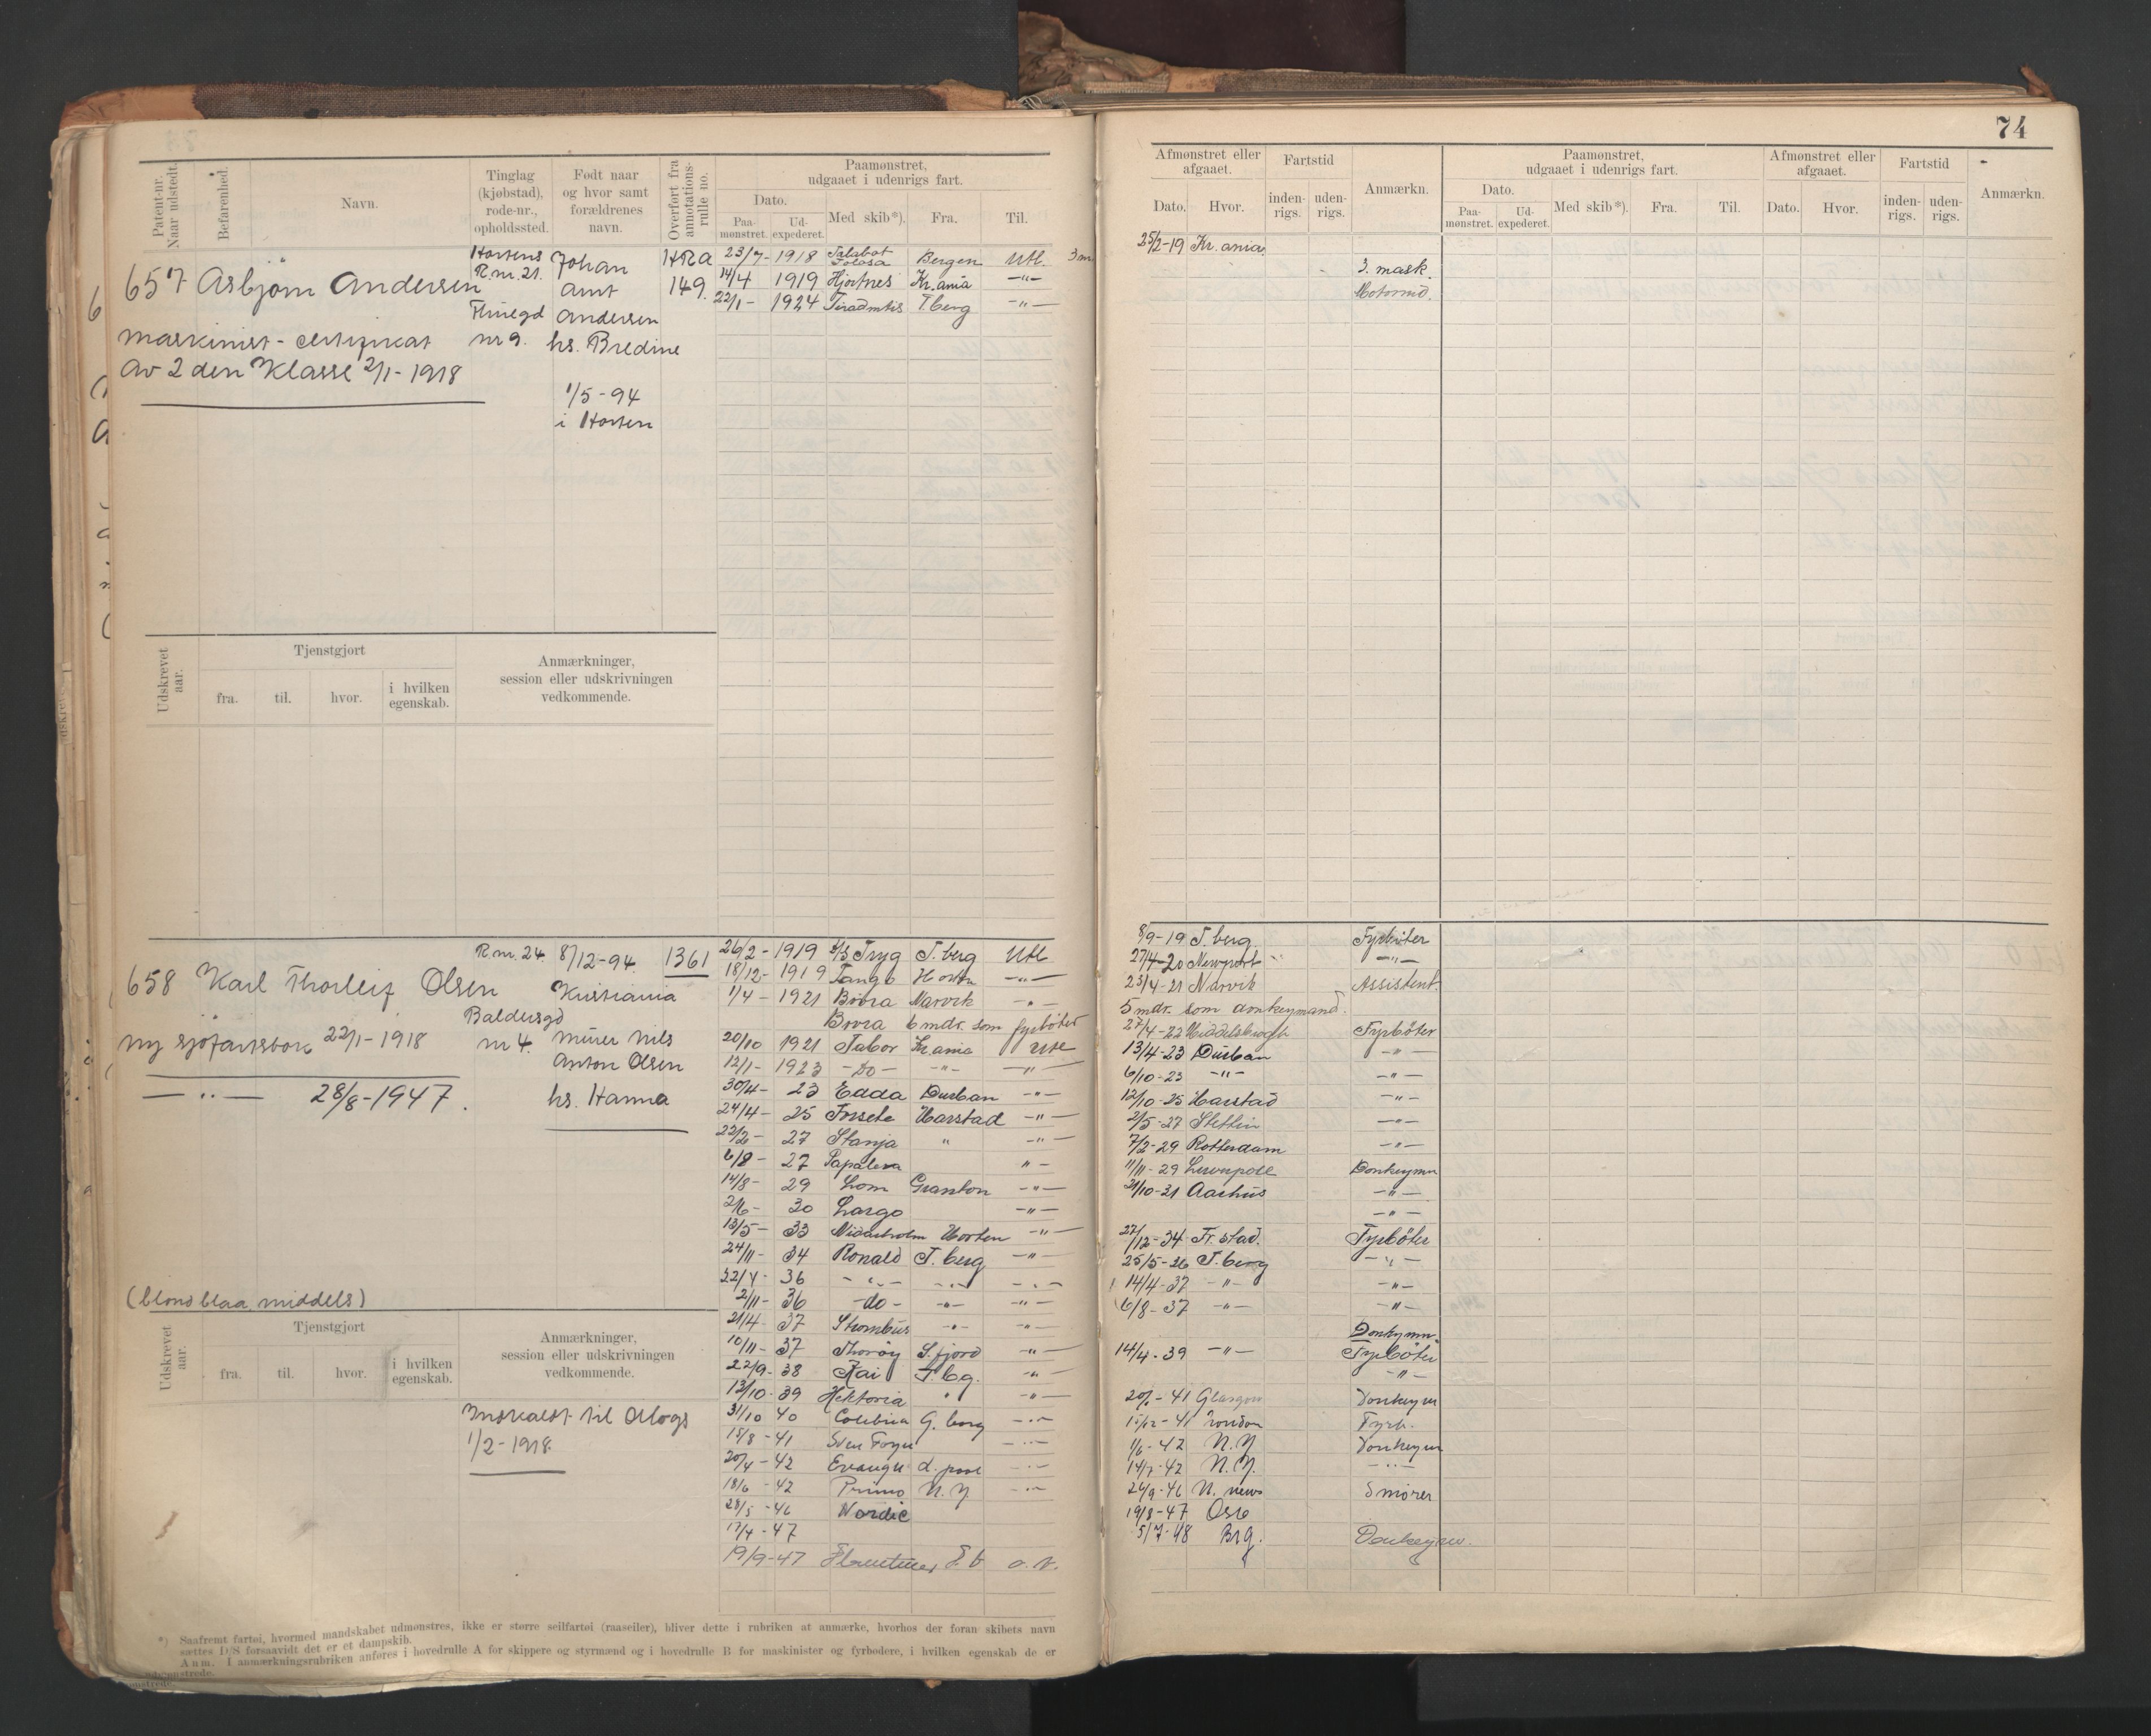 74
Patent-nr. Naar udstedt.
Befarenhed.
Navn.
Tinglag (kjøbstad), rode-nr., opholdssted.
Født naar og hvor samt forældrenes navn.
Overført fra annotations-rulle no.
Paamønstret, udgaaet i udenrigs fart.
Dato.
Paa-mønstret.
Ud-expederet.
Med skib*).
Fra.
Til.
Afmønstret eller afgaaet.
Dato.
Hvor.
Fartstid
inden-rigs.
uden-rigs.
Anmærkn.
Paamønstret, udgaaet i udenrigs fart.
Dato.
Paa-mønstret.
Ud-expederet.
Med skib*).
Fra.
Til.
Afmønstret eller afgaaet.
Dato.
Hvor.
Fartstid
inden-rigs.
uden-rigs.
Anmærkn.
657 Asbjørn Andersen
maskinist-certifikat
av 2den Klasse 2/1-1918
Hortens
R.nr. 21.
nr 9.
Johan
Arnt
Andersen
hs. Bredine
1/5-94
i Horten
HRA
149.
23/7- 1918 Bergen Utl. 3 m
14/4 1919 Hjortnes Kr.ania -"-
22/1- 1924 T.berg -"-
25/2-19 Kr.ania.
3. mask.
Motormd.
Udskrevet aar.
Tjenstgjort
fra.
til.
hvor.
i hvilken egenskab.
Anmærkninger, session eller udskrivningen vedkommende.
658 Karl Thorleif Olsen
ny sjøfartsbok 22/1-1918
-"- 28/8-1947.
(blond blaa middels)
R.nr. 24.
Baldersgd
nr 4.
8/12-94.
Kristiania
murer Nils
Anton Olsen
hs. Hanna
1361
26/2- 1919 s/s Tryg T.berg Utl.
18/12- 1919 Tango Horten -"-
1/4- 1921 Bovra Narvik -"-
Bovra 6 mdr. som fyrbøter
20/10 1921 Tabor Kr.ania Utl
12/1- 1923 -Do- -"- -"-
30/4- 23 Edda Durban -"-
24/4- 25 Forsete Harstad -"-
22/2- 27 Stanja " -"-
6/8- 27 Papalera "-
14/8- 29 Lom Granton -"-
2/6- 30 Largo -"-
13/5- 33 Nidarholm Horten -"-
24/11- 34 Ronald T.berg -"-
22/4- 36 -"- -"- -"-
2/11- 36 -do- -"- -"-
21/4- 37 Strombus -"- -"-
10/11- 37 Thorøy S.fjord -"-
22/9- 38 Kai T.bg. -"-
13/10- 39 Hektoria " -"-
31/10 40 Colebria G.borg -"-
15/8-41 Sven Foyn -"-
20/4-42 L.pool -"-
18/6-42 Primo N.Y -"-
28/5-46 Nordic
17/4-47
19/9-47 o.v.
8/9-19 T.berg. Fyrbøter
27/4-20 Newport -"-
23/4-21 Narvik Assistent.
5 mdr. som donkeymand.
27/4-22 Middelsbrough Fyrbøter
13/4-23 Durban -"-
6/10-23 -"- -"-
12/10-25 Harstad -"-
2/5-27 Stettin -"-
7/2-29 Rotterdam -"-
11/11-29 Liverpool Donkeymn
21/10-31 Aarhus -"-
-"-
27/12-34 Fr.stad. Fyrbøter
25/5-36 T.berg -"-
14/4-37 -"- -"-
6/8-37 -"- -"-
Donkymn.
14/4-39 -"- Fyrbøter
-"-
41 Glasgow Donkeym
15/12-41 London Fyrb.
1/6-42 N.Y Donkeym
14/7-42 N.Y. -"-
24/9-46 N. news Smører
19/8-47 Oslo
5/7-48 Brg. Donkeym.
Udskrevet aar.
Tjenstgjort
fra.
til.
hvor.
i hvilken egenskab.
Anmærkninger, session eller udskrivningen vedkommende.
Innkaldt til
1/2-1918.
*) Saafremt fartøi, hvormed mandskabet udmønstres, ikke er større seilfartøi (raaseiler), bliver dette i rubriken at anmærke, hvorhos der foran skibets navn
sættes D/S forsaavidt det er et dampskib.
Anm. I anmærkningsrubriken anføres i hovedrulle A for skippere og styrmænd og i hovedrulle B for maskinister og fyrbødere, i hvilken egenskab de er